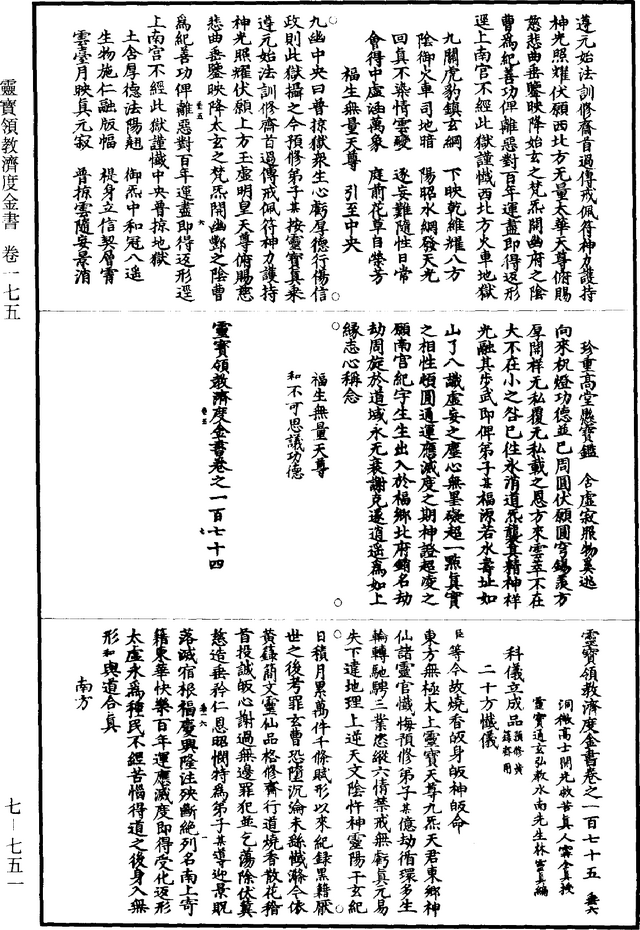 遵元始法訓修齋首過傳戒佩符神力護持
神光照耀伏願西北方无量太華天尊俯賜
慈悲曲垂鑒映降始玄之梵炁開幽府之陰
曹爲紀善功俾離惡對百年運盡即得返形
逕上南宮不經此獄謹懺西北方火車地獄
九關虎豹鎮玄綱　下映乾維耀八方
陰御火車司地暗　陽昭水網發天光
回真不染情雲礙　逐妄難隨性日常
會得中虛涵萬象　庭前花草自榮芳
福生無量天尊　引至中央
九幽中央曰普掠獄衆生心虧厚德行傷信
政則此獄攝之今預修弟子某按靈寶真乘
遵元始法訓修齋首過傳戒佩符神力護持
神光照耀伏願上方玉虛明皇天尊俯賜慈
悲曲垂鑒映降太玄之梵炁開幽酆之陰曹
爲紀善功俾離惡對百年運盡即得返形逕
上南宮不經此獄謹懺中央普掠地獄
土含厚德法陽翹　御炁中和冠八遥
生物施仁融版幅　禔身立信契層霄
雲臺月映真元寂　普掠雲隨妄景消
珍重高堂懸寶鑑　含虛寂照物奚逃
向來祝燈功德並已周圓伏願圓穹錫羨方
厚開祥无私覆无私載之恩方來雲萃不在
大不在小之咎已往氷消道炁襲真精神祥
光融其步武即俾弟子某福源若水壽址如
山了八識虛妄之塵心無罣礙超一點真實
之相性頓圓通運應滅度之期神證超凌之
願南宮紀字生生出入於福鄉北府銷名劫
劫周旋於道域永无衰謝克遂逍遥爲如上
緣志心稱念
福生無量天尊
和不可思議功德
靈寶領教濟度金書卷之一百七十四
靈寶領教濟度金書卷之一百七十五
洞微高士開光救苦真人甯全真授
靈寶通玄弘教水南先生林靈真編
科儀立成品 預修黃籙齋用
二十方懺儀
臣等今故燒香皈身皈神皈命
東方無極太上靈寶天尊九炁天君東鄉神
仙諸靈官懺悔預修弟子某億劫循環多生
輪轉馳騁三業恣縱六情禁戒無虧真元易
失下違地理上逆天文陰忤神靈陽干玄紀
日積月累萬件千條賦形以來紀錄黑籍厭
世之後考罪玄曹恐墮沉淪未繇懺滌今依
黃籙簡文靈仙品格修齋行道燒香散花稽
首投誠皈心謝過無邊罪犯並乞蕩除伏冀
慈造垂矜仁恩昭憫特為弟子某導迎景貺
落滅宿根福慶興隆注殃斷絕列名南上寄
籍東華快樂百年運應滅度即得受化返形
太虛永爲種民不經苦惱得道之後身入無
形和與道合真
南方
靈寶領教濟度金書　卷一七五
七—七五一